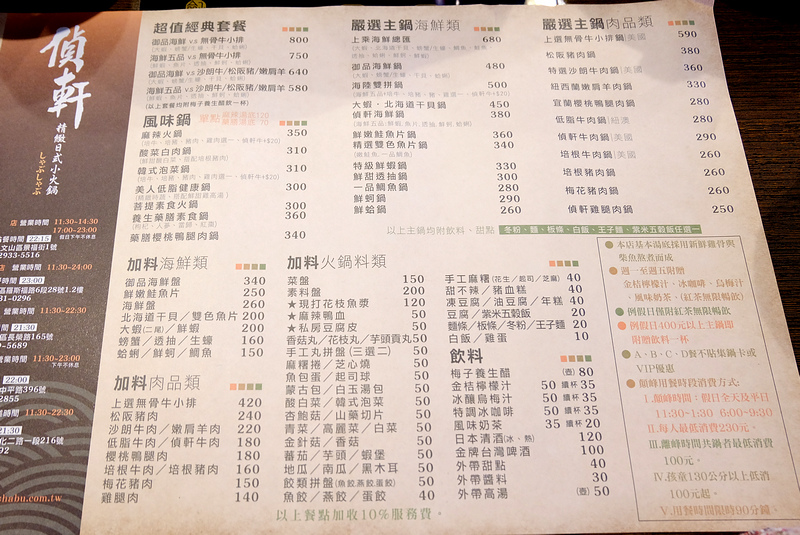 偵軒
精緻日式小火鍋
しゃぶしゃぶ
店 營業時間 11:30-14:30
17:00-23:00
假日下午不休息
22:15
文山區景福街1號
2933-5516
營業時間 11:30-24:00
23:00
區羅斯福路6段28號1.2樓
31-0296
營業時間 11:30-22:30
21:30
區長榮路165號
-5689
營業時間 11:30-23:00
下午不休息
22:00
中平路396號
2855
營業時間 11:30-22:30
21:30
化二路一段216號
habu.com.tw
超值經典套餐
御品海鮮 vs 無骨牛小排 800
海鮮五品 vs 無骨牛小排 750
御品海鮮 vs 沙朗牛/松阪豬/嫩肩羊 640
海鮮五品 vs 沙朗牛/松阪豬/嫩肩羊 580
(以上套餐均附梅子養生醋飲一杯)
風味鍋
麻辣火鍋 350
酸菜白肉鍋 310
韓式泡菜鍋 310
美人低脂健康鍋 300
菩提素食火鍋 300
養生藥膳素食鍋 360
藥膳櫻桃鴨腿肉鍋 340
嚴選主鍋海鮮類
上乘海鮮總匯 680
御品海鮮鍋 480
海陸雙拼鍋 500
大蝦‧北海道干貝鍋 450
偵軒海鮮鍋 380
鮮嫩鮭魚片鍋 360
精選雙色魚片鍋 340
特級鮮蝦鍋 330
鮮甜透抽鍋 300
一品鯛魚鍋 280
鮮蚵鍋 290
鮮蛤鍋 260
嚴選主鍋肉品類
上選無骨牛小排鍋|美國 590
松阪豬肉鍋 380
特選沙朗牛肉鍋|美國 360
紐西蘭嫩肩羊肉鍋 330
宜蘭櫻桃鴨腿肉鍋 280
低脂牛肉鍋|紐澳 280
偵軒牛肉鍋|美國 290
培根牛肉鍋|美國 260
培根豬肉鍋 260
梅花豬肉鍋 260
偵軒雞腿肉鍋 250
以上主鍋均附飲料、甜點 冬粉、麵、板條、白飯、王子麵、紫米五穀飯任選一
加料海鮮類
御品海鮮盤 340
鮮嫩鮭魚片 250
海鮮盤 260
北海道干貝/雙色魚片 200
大蝦(二尾)/鮮蝦 200
螃蟹/透抽/生蠔 160
蛤蜊/鮮蚵/鯛魚 150
加料肉品類
上選無骨牛小排 420
松阪豬肉 240
沙朗牛肉/嫩肩羊肉 220
低脂牛肉/偵軒牛肉 180
櫻桃鴨肉 180
培根牛肉/培根豬肉 160
梅花豬肉 150
雞腿肉 140
加料火鍋料類
菜盤 150
素料盤 200
★現打花枝魚漿 120
★麻辣鴨血 50
★私房豆腐皮 50
香菇丸/花枝丸/芋頭貢丸 50
手工丸拼盤(三選二) 50
麻糬捲/芝心燒 50
魚包蛋/起司球 50
蒙古包/白玉湯包 50
酸白菜/韓式泡菜 50
杏鮑菇/山藥切片 50
青菜/高麗菜/白菜 50
金針菇/香菇 50
蕃茄/芋頭/蝦堡 50
地瓜/南瓜/黑木耳 50
餃類拼盤(魚餃.燕餃.蛋餃) 50
魚餃/燕餃/蛋餃 40
手工麻糬(花生/起司/芝麻) 40
甜不辣/豬血糕 40
凍豆腐/油豆腐/年糕 40
豆腐/紫米五穀飯 20
麵條/板條/冬粉/王子麵 20
白飯/雞蛋 10
飲料
梅子養生醋 (壺) 80
金桔檸檬汁 50 續杯 35
冰釀烏梅汁 50 續杯 35
特調冰咖啡 50 續杯 35
風味奶茶 35 續杯 20
日本清酒(冰、熱) 120
金牌台灣啤酒 100
外帶甜點 40
外帶醬料 30
外帶高湯 (壺) 50
●本店基本湯底採用新鮮雞骨與
柴魚熬煮而成
●週一至週五附贈
金桔檸檬汁、冰咖啡、烏梅汁
、風味奶茶、(紅茶無限暢飲)
●例假日僅附紅茶無限暢飲
●例假日400元以上主鍋即
附贈飲料一杯
●A、B、C、D餐不貼集鍋卡或
VIP優惠
●顛峰用餐時段消費方式:
I.顛峰時間:假日全天及平日
11:30-1:30 6:00-9:30
II.每人最低消費230元。
III.顛峰時間共鍋者最低消費
100元。
IV.孩童130公分以上低消
100元起。
V.用餐時間限時90分鐘。
以上餐點加收10%服務費。